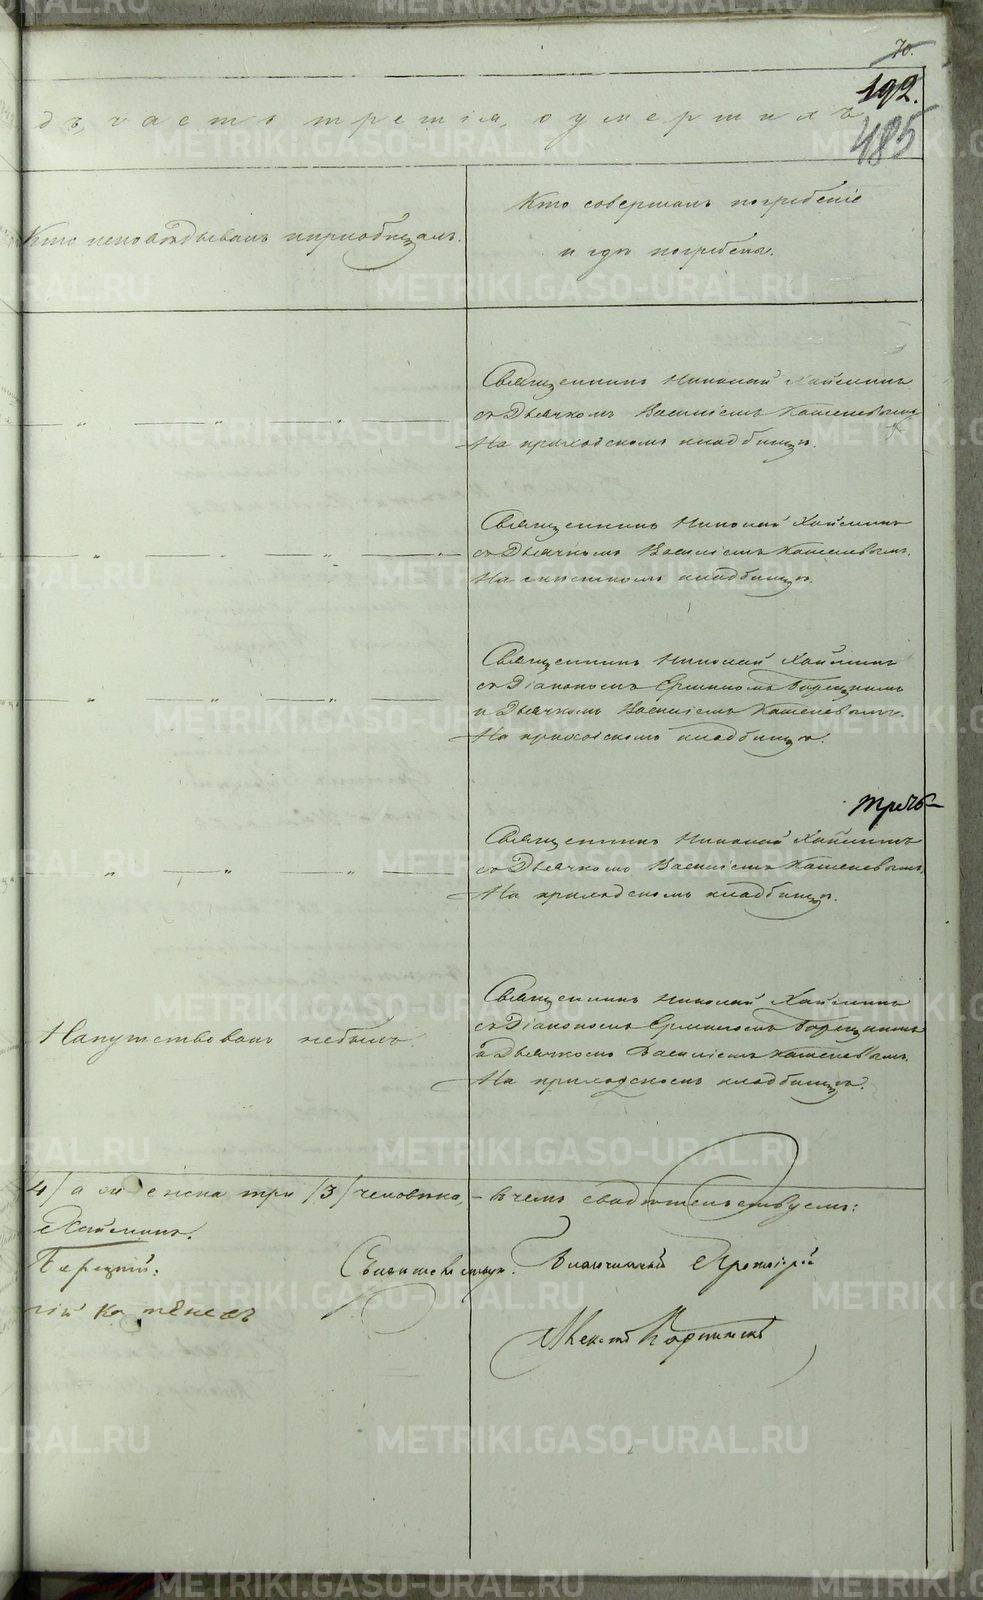 70.
192.
485
дъ, часть третія, о умершихъ
Кто исповѣдывалъ и приобщалъ.
Кто совершалъ погребеніе
и гдѣ погребены.
Священникъ Николай Хайминъ
съ Дьячкомъ Василіемъ Кашеневымъ
На приходскомъ кладбищѣ.
Священникъ Николай Хайминъ
съ Дьячкомъ Василіемъ Кашеневымъ.
На кладбищѣ.
Священникъ Николай Хайминъ
съ Діакономъ Ерминомъ Барецкимъ
и Дьячкомъ Василіемъ Кашеневымъ.
На приходскомъ кладбищѣ.
Священникъ Николай Хайминъ
съ Дьячкомъ Василіемъ Кашеневымъ.
На приходскомъ кладбищѣ.
Напутствованъ небылъ.
Священникъ Николай Хайминъ
съ Діакономъ Ерминомъ Барецкимъ
и Дьячкомъ Василіемъ Кашеневымъ.
На приходскомъ кладбищѣ.
4/ а женска три /3/ человѣка, – в чемъ свидѣтельствуемъ:
Хайминъ.
Барецкій:
Свидѣтельствув. Благочинный Протоіерей
METRIKI.GASO-URAL.RU